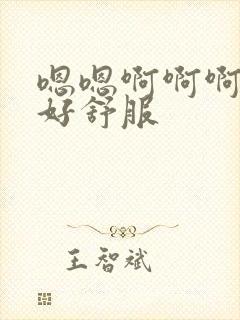 嗯嗯啊啊啊
好舒服
王智斌